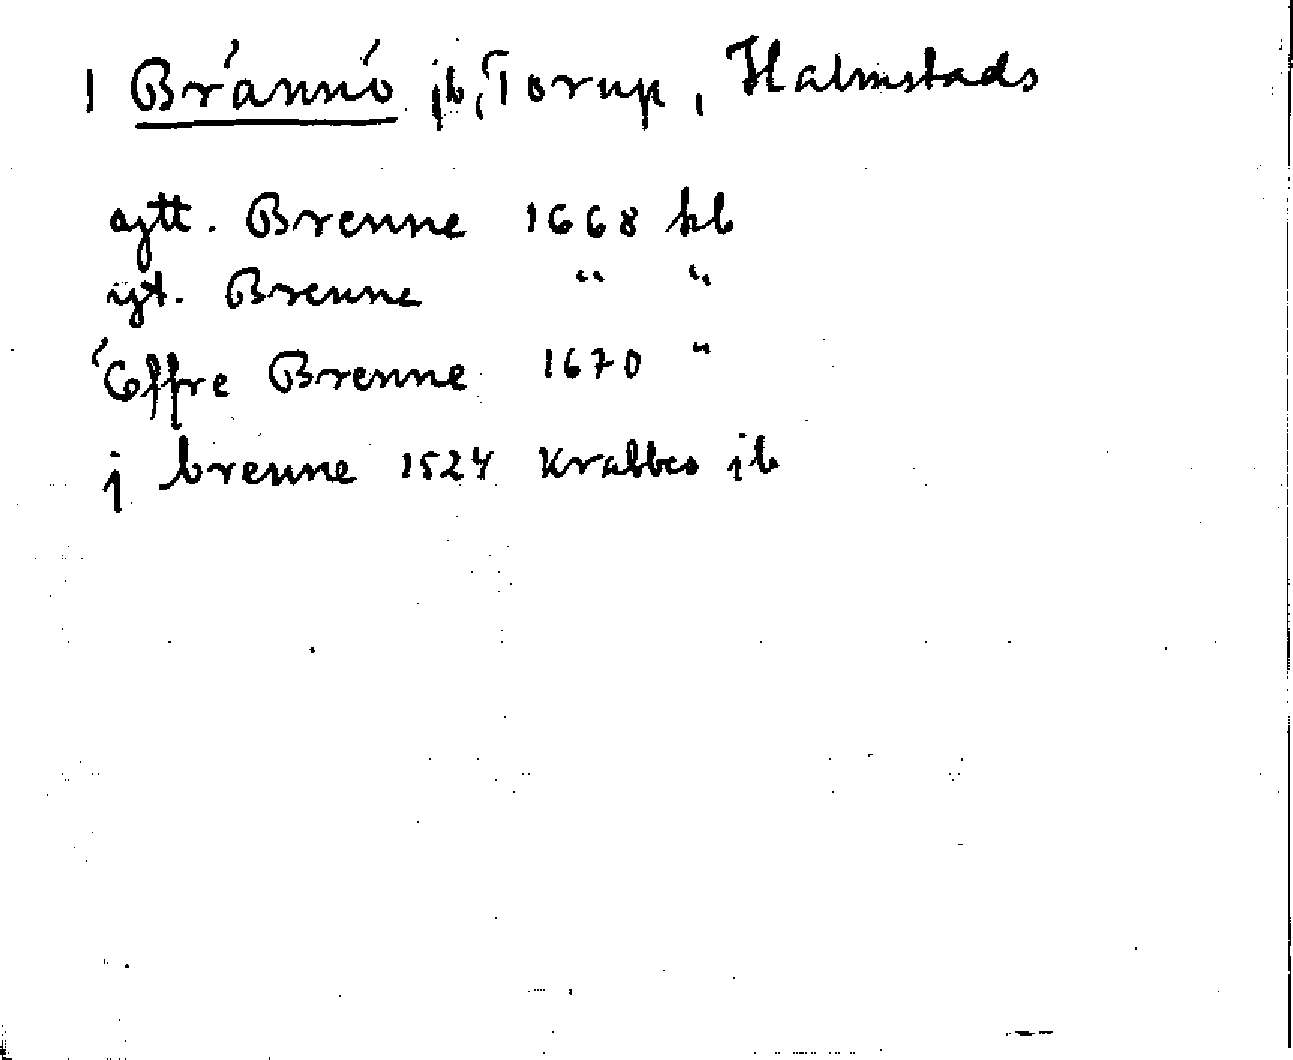 1 Brännö jb, Torup, Halmstads
aytt. Brenne 1668 hb
yt. Brenne " "
Öffre Brenne 1670 "
j brenne 1524 Krabbes jb